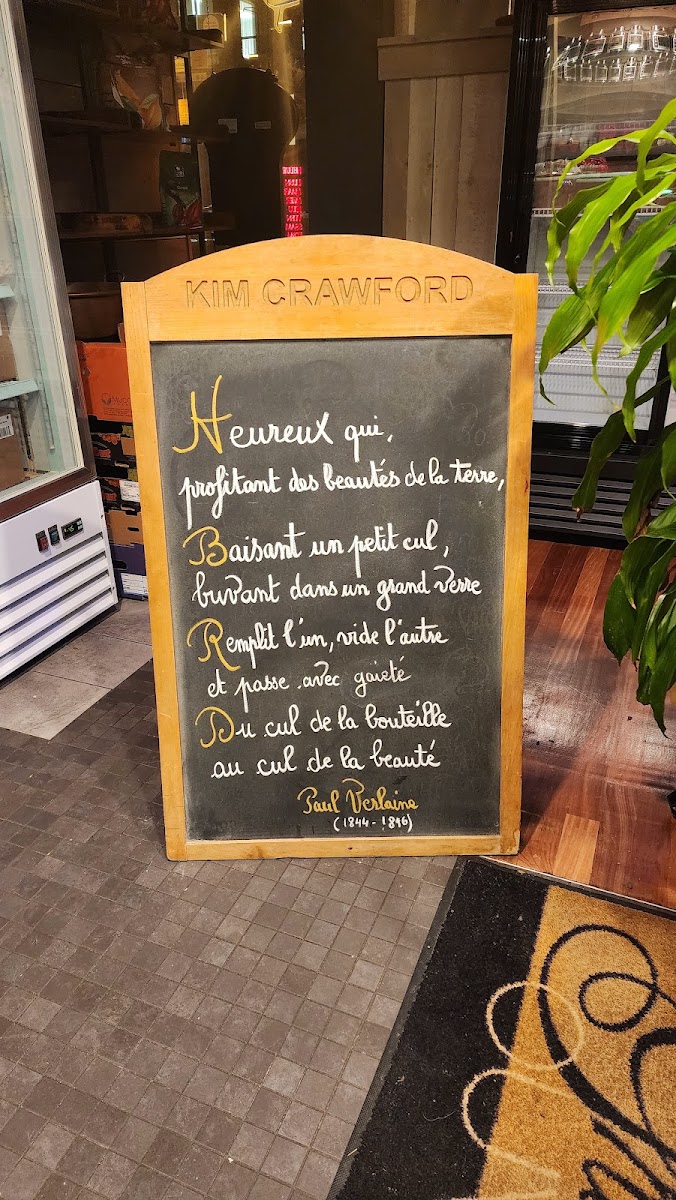 KIM CRAWFORD
Heureux qui,
profitant des beautés de la terre,
Baisant un petit cul,
buvant dans un grand verre
Remplit l'un, vide l'autre
et passe avec gaieté
Du cul de la bouteille
au cul de la beauté
Paul Verlaine
(1844-1896)